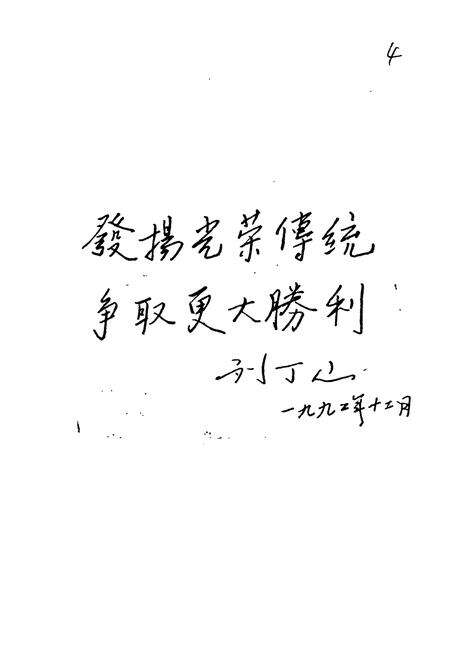 4
發揚光荣傳統
争取更大勝利
刘丁山
一九九二年十二月